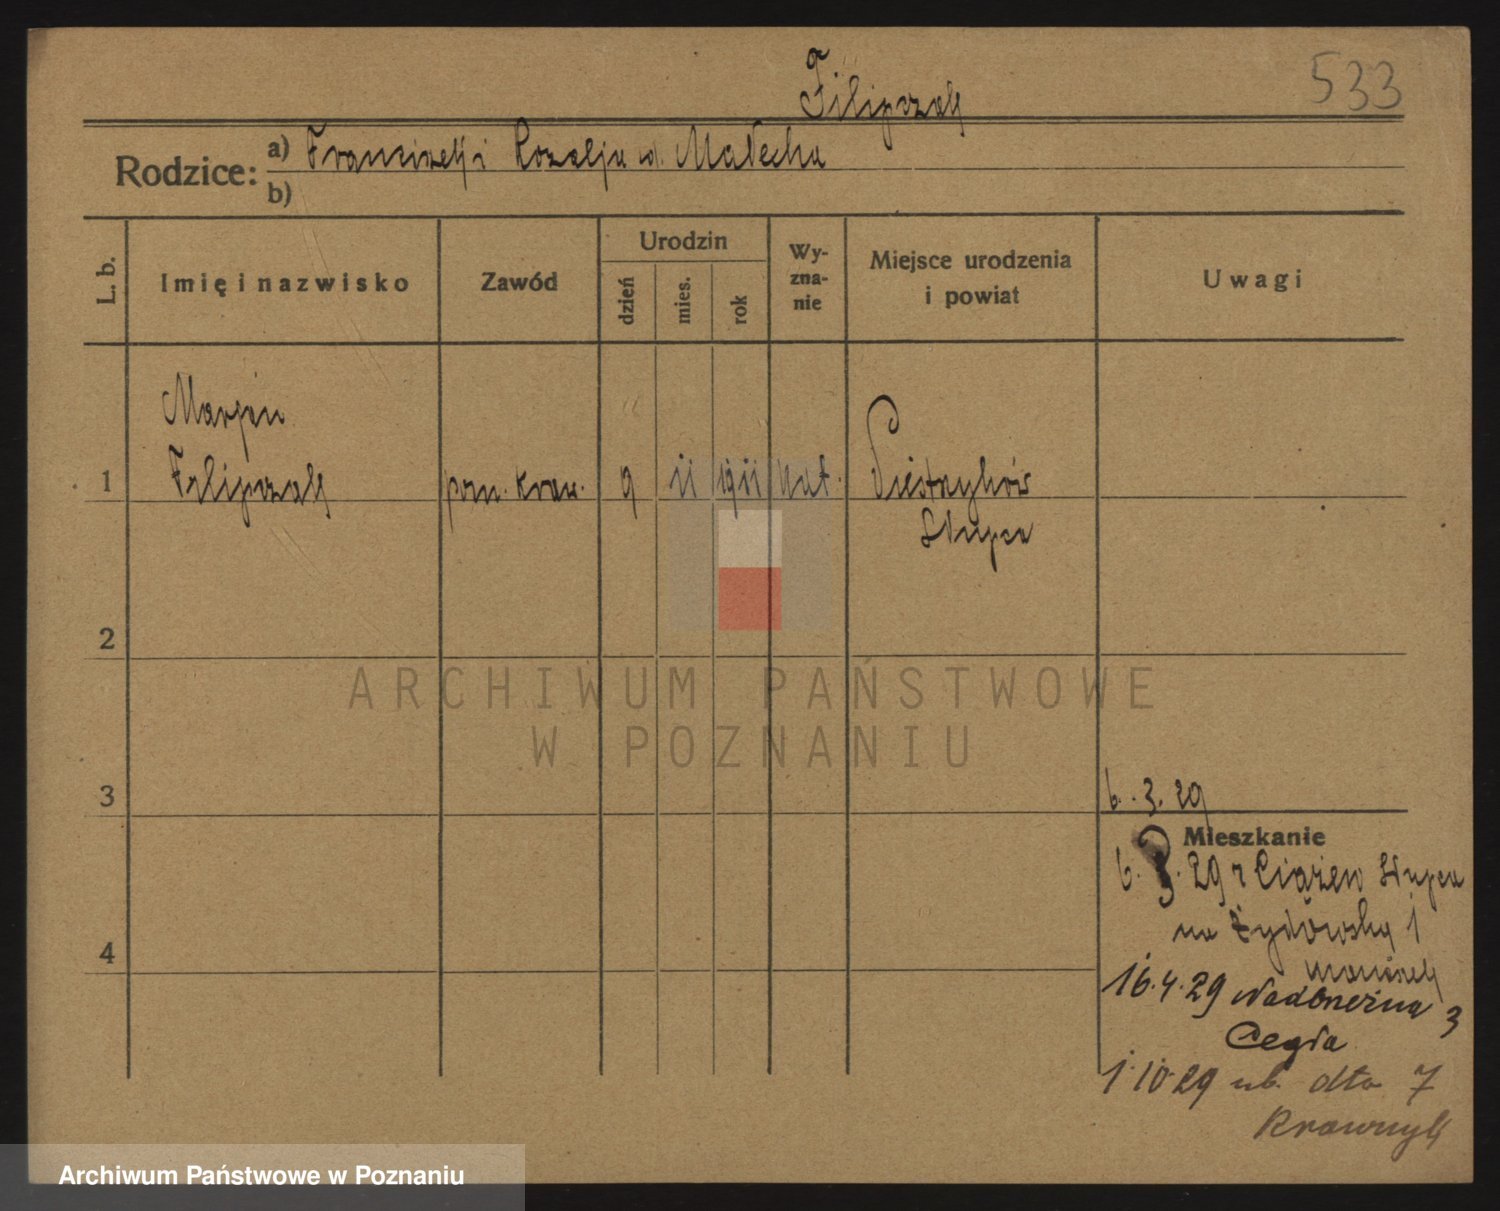 533
Filipczak
Rodzice: a) Franciszek i Rozalja ur. Małecka
b)
L. b. Imię i nazwisko Zawód Urodzin dzień mies. rok Wy-zna-nie Miejsce urodzenia i powiat Uwagi
Marjan
1 Filipczak pom. kraw. 9 11 1911 kat.
Słupca
2
ARCHIWUM PAŃSTWOWE
W POZNANIU
3
6. 3. 29
Mieszkanie
6. 3. 29 z Ciążeń Słupca
na Żydowską 1
16. 4. 29 Nadbrzeżna 3
Cegła
1. 10. 29 ub. dto 7
Krawczyk
4
Archiwum Państwowe w Poznaniu